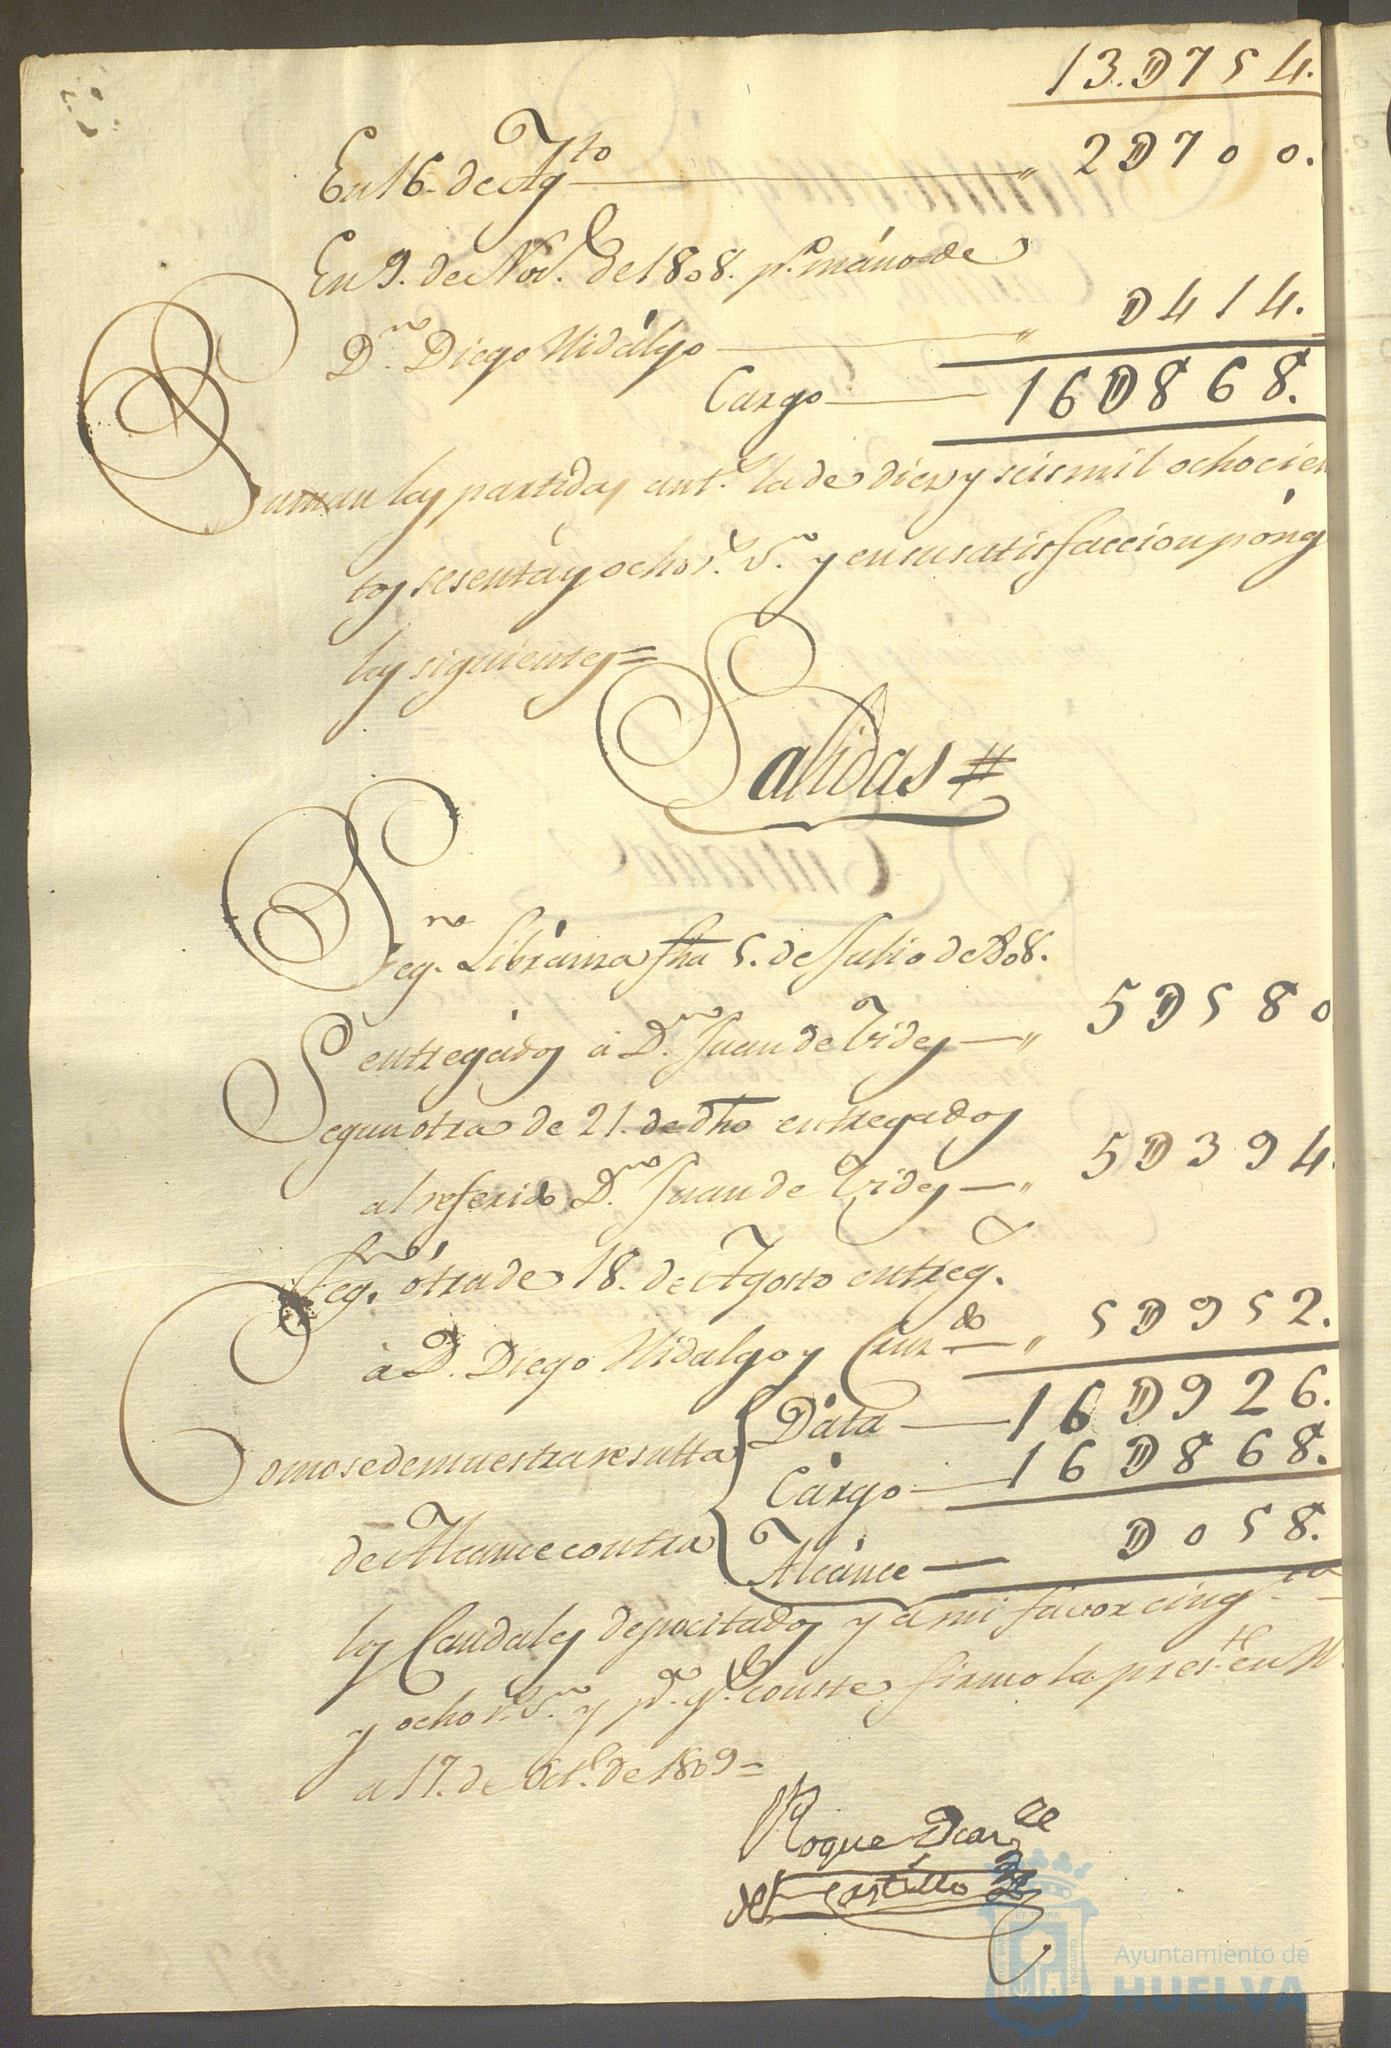 13.D754.
En 16. de Agto " 2D700.
En 9. de Nove. de 1808. pr. mano de
Dn. Diego Hidalgo " D414.
Cargo 16D868.
Suman las partidas ant.s la de diez y seis mil ochocien
tos sesenta y ocho rs. vn. y en su satisfaccion pong
las siguientes =
Salidas #
Segn. Libranza fha 5. de Julio de 808.
entregados a Dn. Juan de Trides " 5D580
Segun otra de 21. de dho entregados
al referido Dn. Juan de Trides " 5D394.
Segn. otra de 18. de Agosto entreg.s
à D. Diego Hidalgo y Cruzdo " 5D952.
Data 16D926.
Como se demuestra resulta
Cargo 16D868.
de Alcance contra
Alcance D058.
los Caudales depocitados y a mi favor cinqta
y ocho rs. vn. y pa. qe. conste firmo la preste. en H.
a 17. de Octe. de 1809 =
Roque
del Castillo
Ayuntamiento de
HUELVA